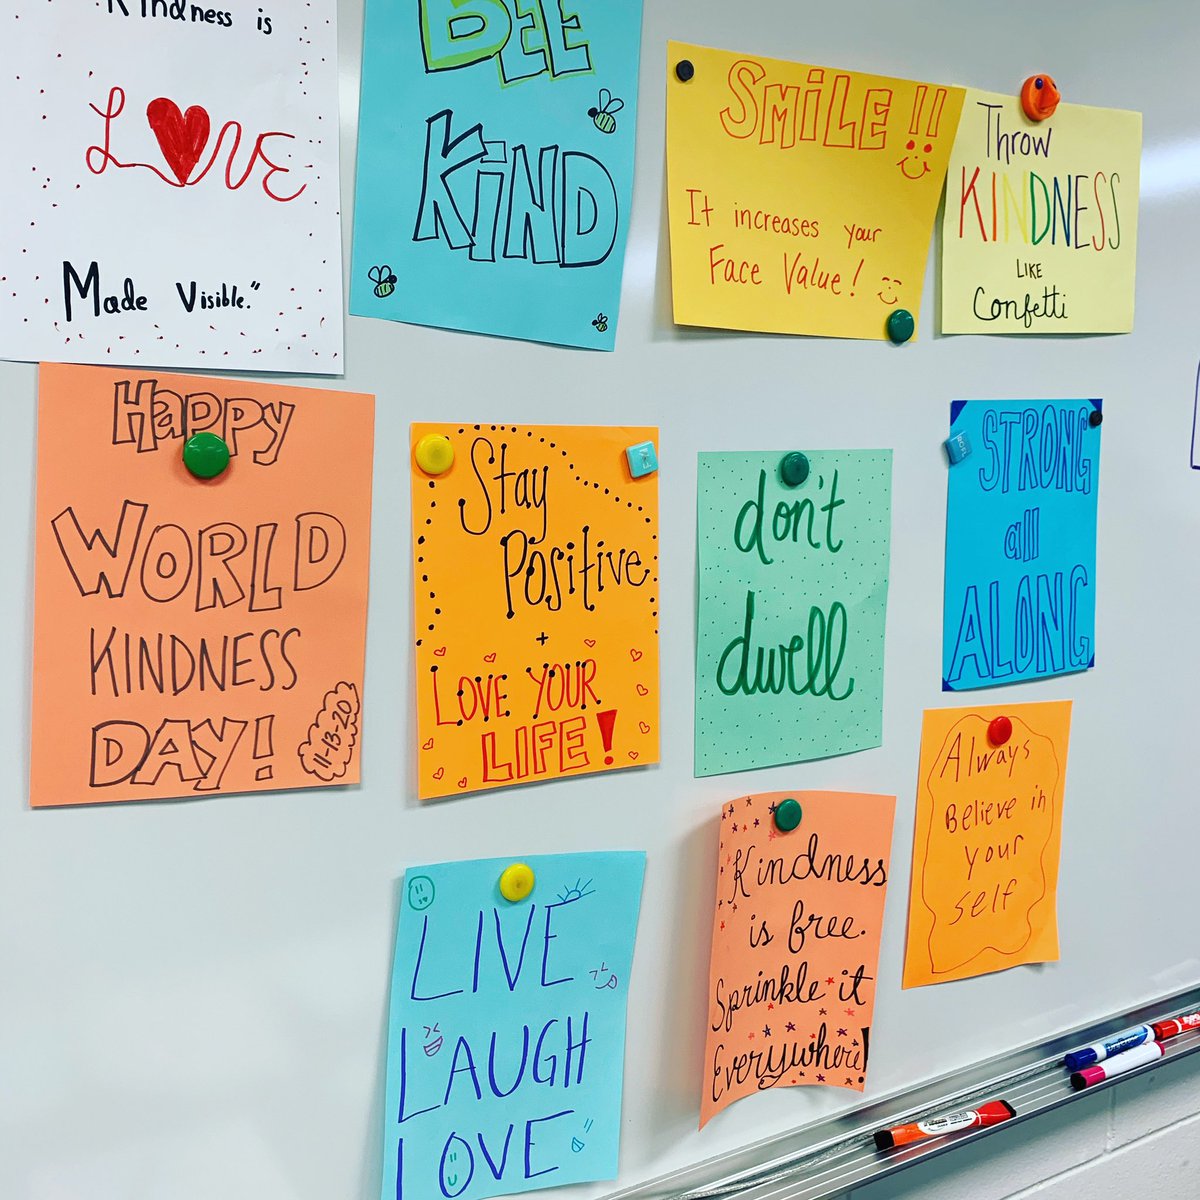 Kindness is
LOVE
Made Visible."
BEE
KIND
SMILE!!
It increases your
Face Value!
Throw
KINDNESS
LIKE
Confetti
Happy
WORLD
KINDNESS
DAY!
11-13-20
Stay
Positive
+
LOVE YOUR
LIFE!
don't
dwell
STRONG
all
ALONG
Always
Believe in
your
self
LIVE
LAUGH
LOVE
Kindness
is free.
Sprinkle it
Everywhere!